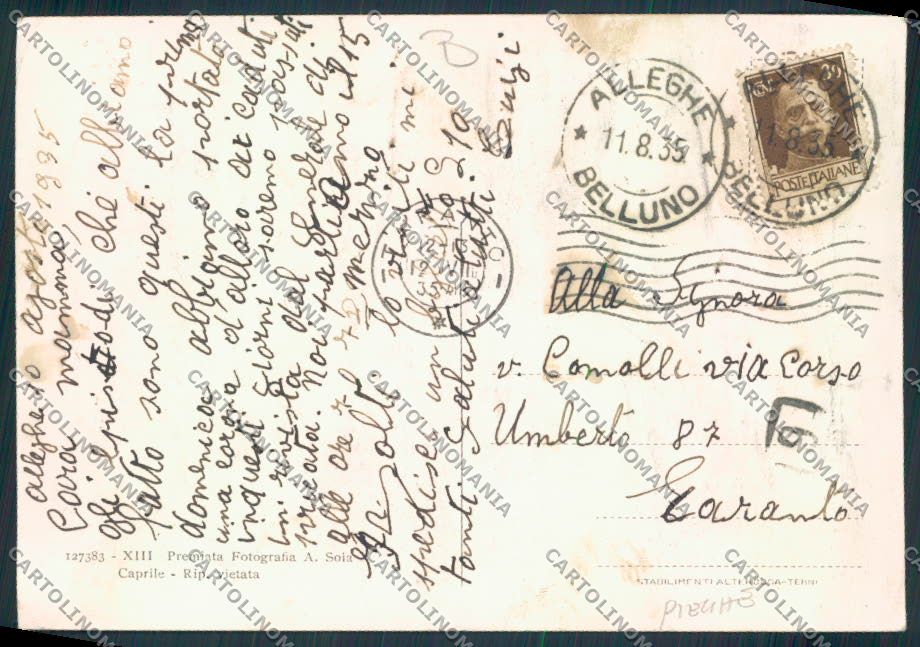 alleghe 10 agosto 1935
Cara mamma
Gli episodi che abbiamo
fatto sono questi la prima
domenica abbiamo portato
una corona d'alloro ai caduti
in questi giorni saremo passati
in rivista dal Generale di
armata. Noi partiamo il 15
alle ore
la volti mi
spedisci un
tanti saluti a tutti
Luigi
B
ALLEGHE
11.8.35
BELLUNO
ALLEGHE
11.8.35
BELLUNO
POSTE ITALIANE
TARANTO
Alla Signora
v. Comolli via Corso
Umberto 87
Taranto
127383 - XIII Premiata Fotografia A. Soia
Caprile - Rip. vietata
STABILIMENTI ALTEROCCA-TERNI
PIEGHE
CARTOLINOMANIA